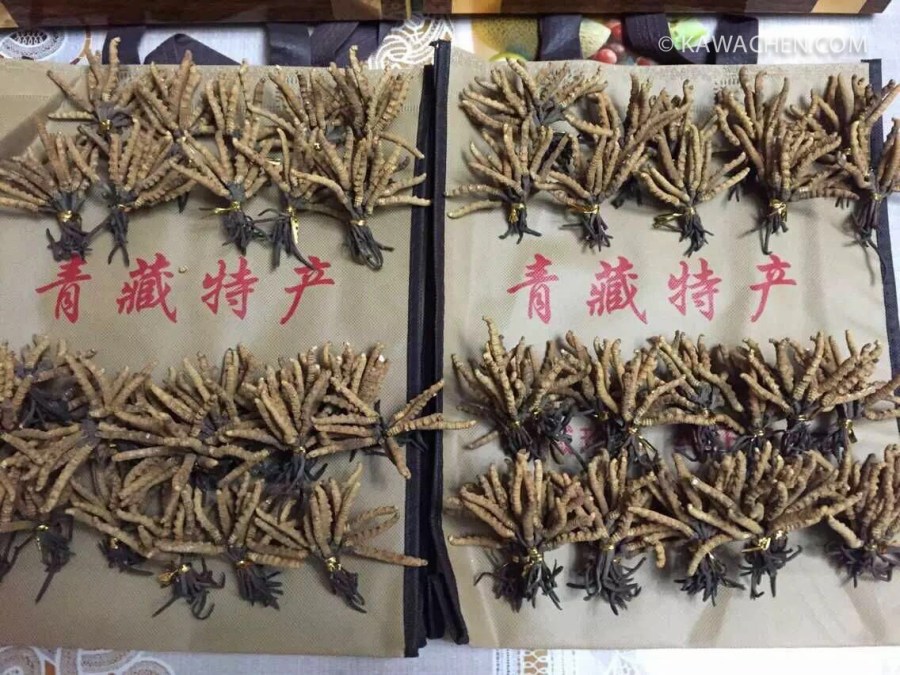 © KAWACHEN.COM
青藏特产
青藏特产